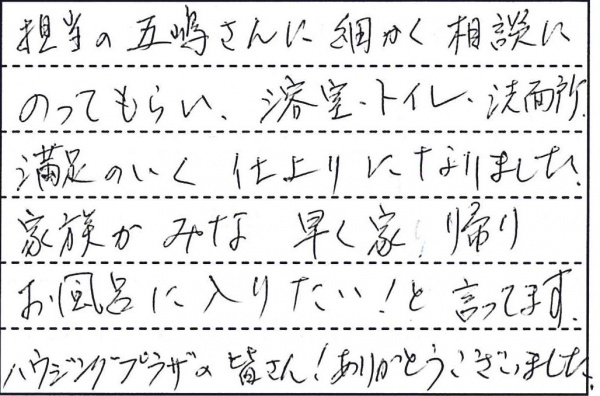 担当の五嶋さんに細かく相談に
のってもらい、浴室、トイレ、洗面所
満足のいく仕上りになりました。
家族がみな 早く家 帰り
お風呂に入りたい!と言ってます。
ハウジングプラザの皆さん!ありがとうございました。